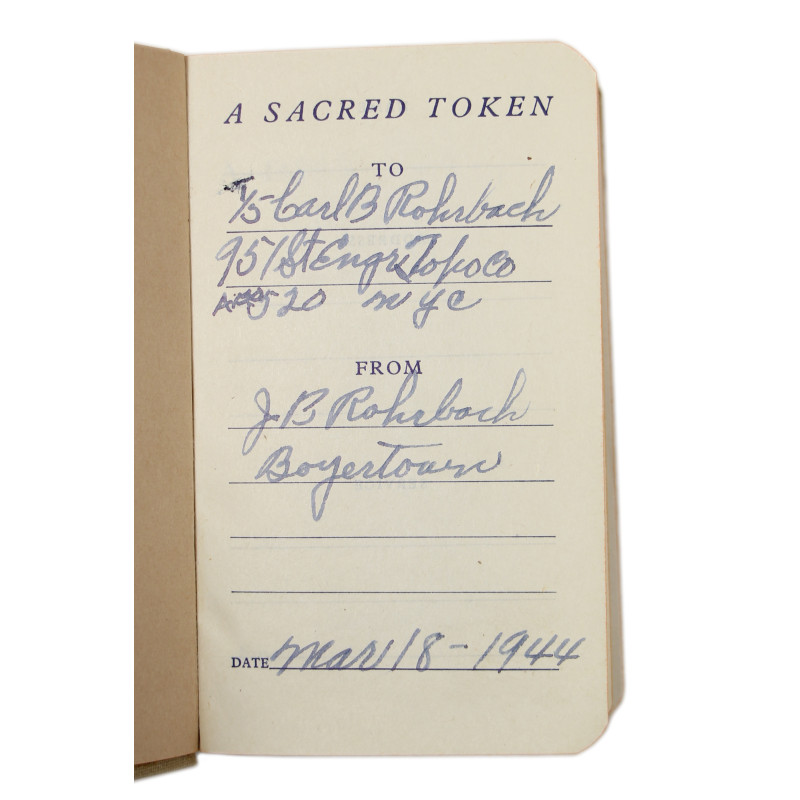 A SACRED TOKEN
TO
T/5 Carl B Rohrbach
951 St Engr Topo Co
APO 520 NYC
FROM
J B Rohrbach
Boyertown
DATE Mar 18 - 1944